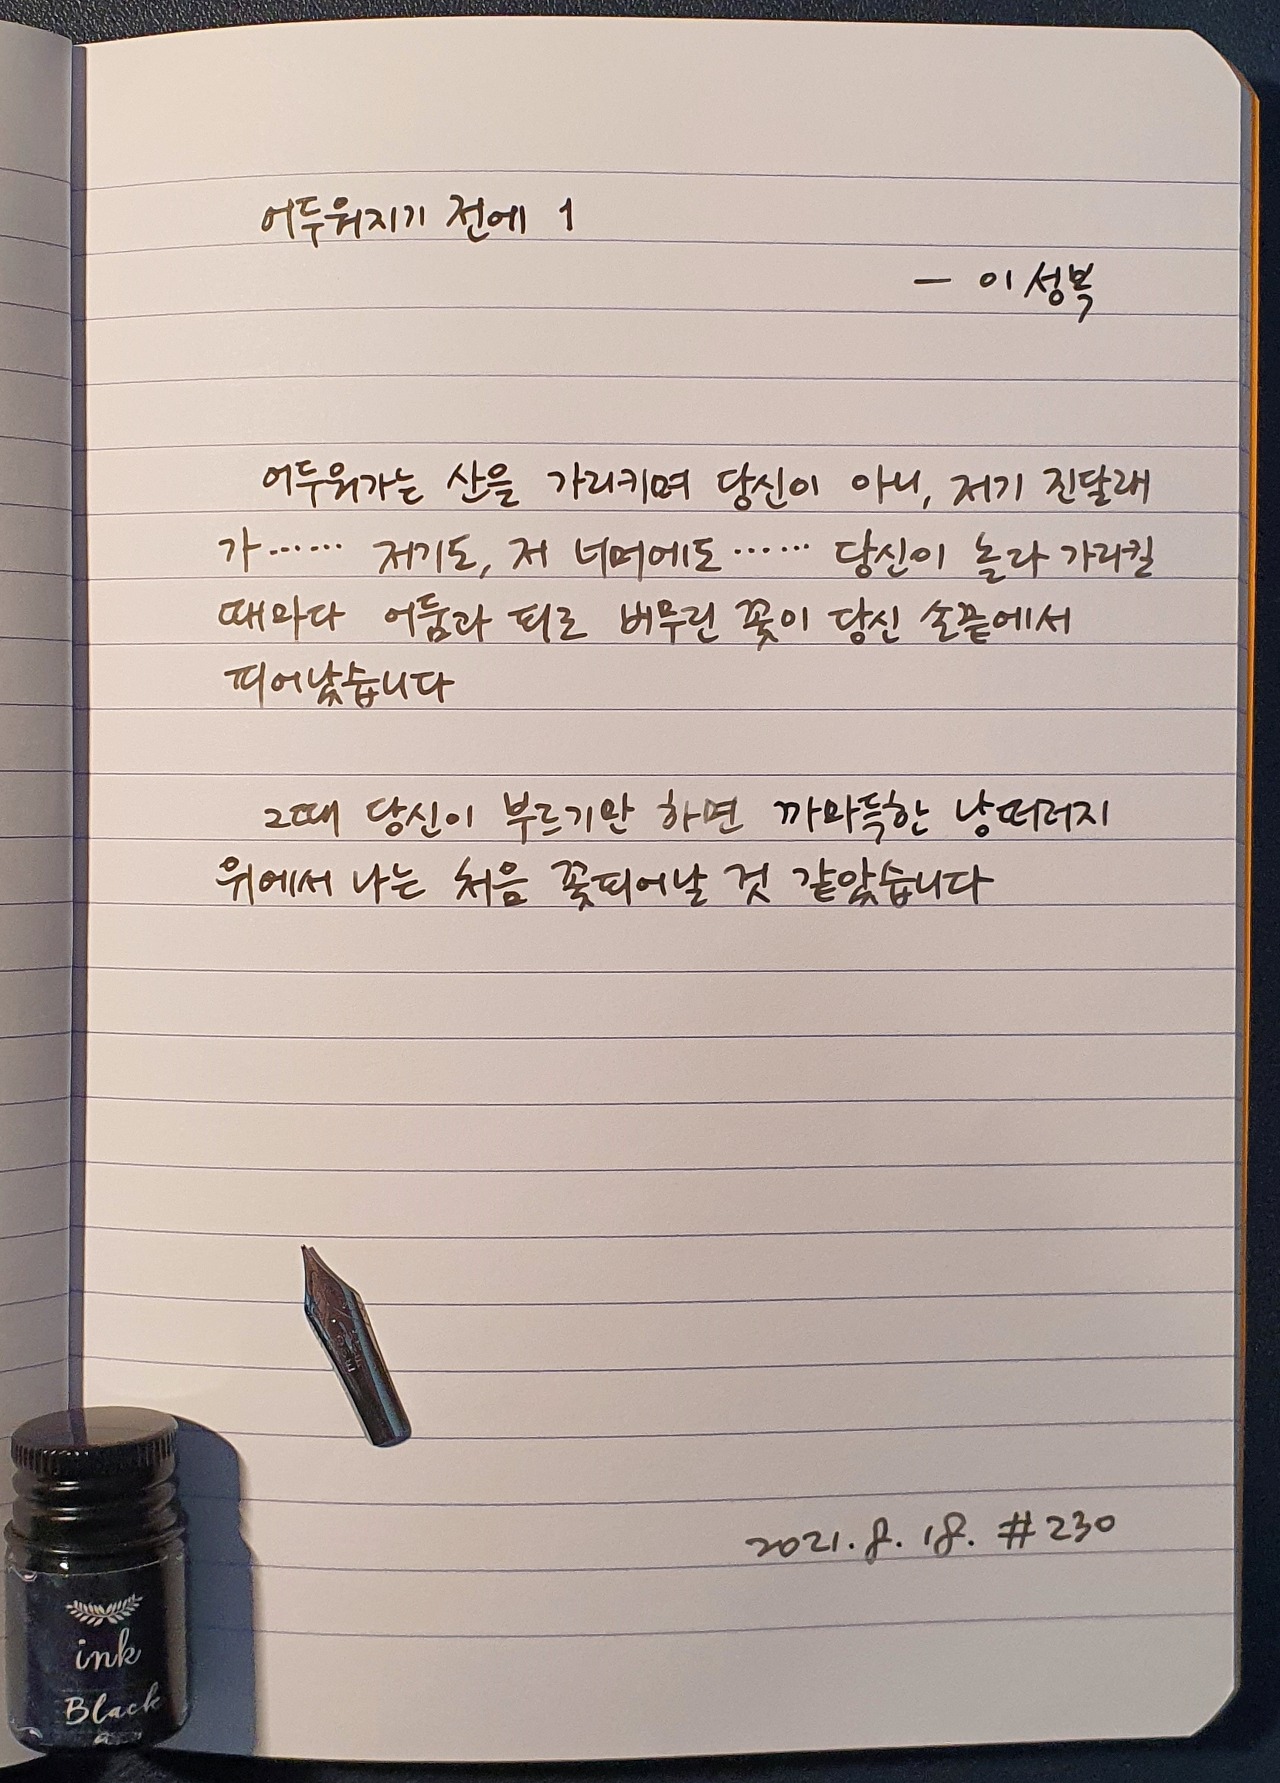 어두워지기 전에 1
— 이성복
어두워가는 산을 가리키며 당신이 아니, 저기 진달래
가…… 저기도, 저 너머에도…… 당신이 놀라 가리킬
때마다 어둠과 피로 버무린 꽃이 당신 손끝에서
피어났습니다
그때 당신이 부르기만 하면 까마득한 낭떠러지
위에서 나는 처음 꽃피어날 것 같았습니다
2021. 8. 18. #230
ink
Black